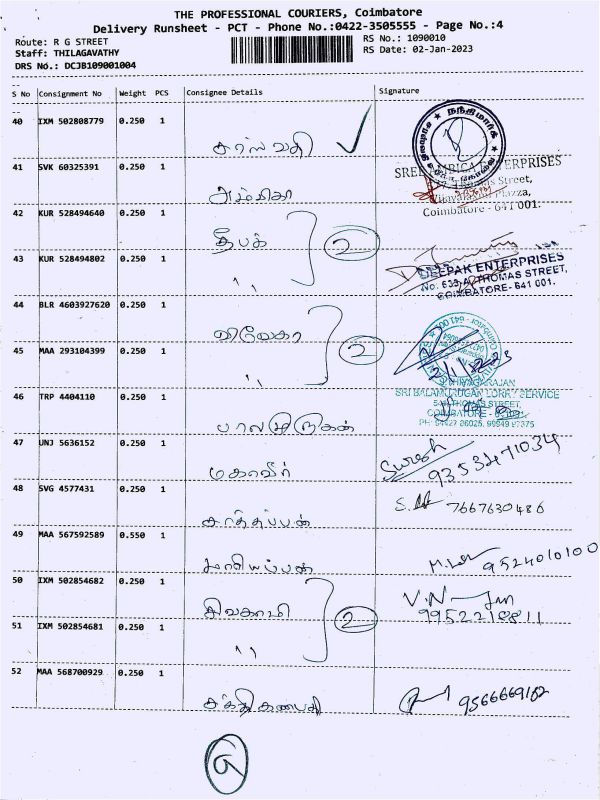 THE PROFESSIONAL COURIERS, Coimbatore
Delivery Runsheet - PCT - Phone No.:0422-3505555 - Page No.:4
Route: R G STREET
RS No.: 1090010
Staff: THILAGAVATHY
RS Date: 02-Jan-2023
DRS No.: DCJB109001004
S No Consignment No Weight PCS Consignee Details Signature
40 IXM 502808779 0.250 1
சரஸ்வதி
41 SVK 60325391 0.250 1
அம்பிகா
SREE AMBICA ENTERPRISES
Thomas Street,
Plazza,
Coimbatore - 641 001.
42 KUR 528494640 0.250 1
தீபக் 2
43 KUR 528494802 0.250 1
,,
DEEPAK ENTERPRISES
No. 633, A, THOMAS STREET,
COIMBATORE- 641 001.
44 BLR 4603927620 0.250 1
விவேகா 2
45 MAA 293104399 0.250 1
,,
2/1/2023
46 TRP 4404110 0.250 1
பாலமுருகன்
SRI BALAMURUGAN LORRY SERVICE
THOMAS STREET,
COIMBATORE
47 UNJ 5636152 0.250 1
மகாவீர்
Suresh
9353471034
48 SVG 4577431 0.250 1
சாத்தப்பன்
7667630486
49 MAA 567592589 0.550 1
மாரியப்பன்
9524010100
50 IXM 502854682 0.250 1
சிவகாமி 2
9952218811
51 IXM 502854681 0.250 1
,,
52 MAA 568700929 0.250 1
சக்தி கணபதி
9566669162